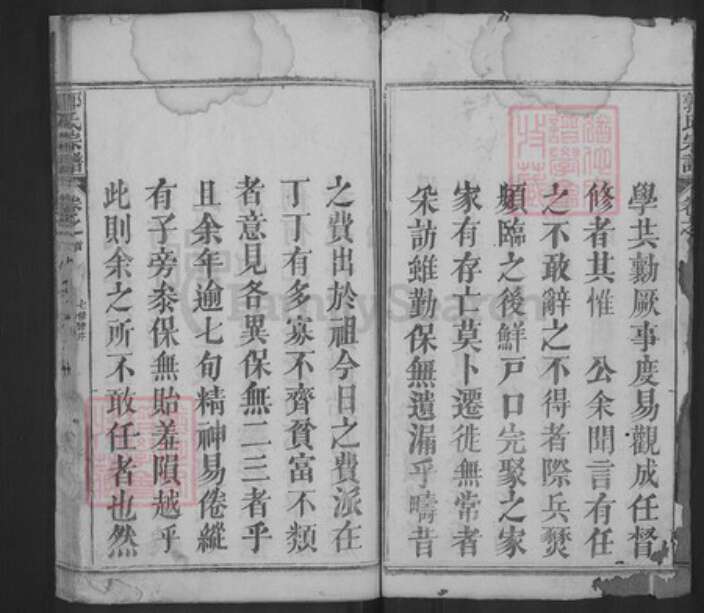 學共勷厥事度易觀成任督
修者其惟　公余聞言有任
之不敢辭之不得者際兵燹
頻臨之後鮮戸口完聚之家
家有存亡莫卜遷徙無常者
采訪雖勤保無遺漏乎疇昔
之費出於祖今日之費派在
丁丁有多寡不齊貧富不類
者意見各異保無二三者乎
且余年逾七旬精神易倦縱
有子旁叅保無貽羞隕越乎
此則余之所不敢任者也然
郭氏宗譜
卷之首
FamilySearch